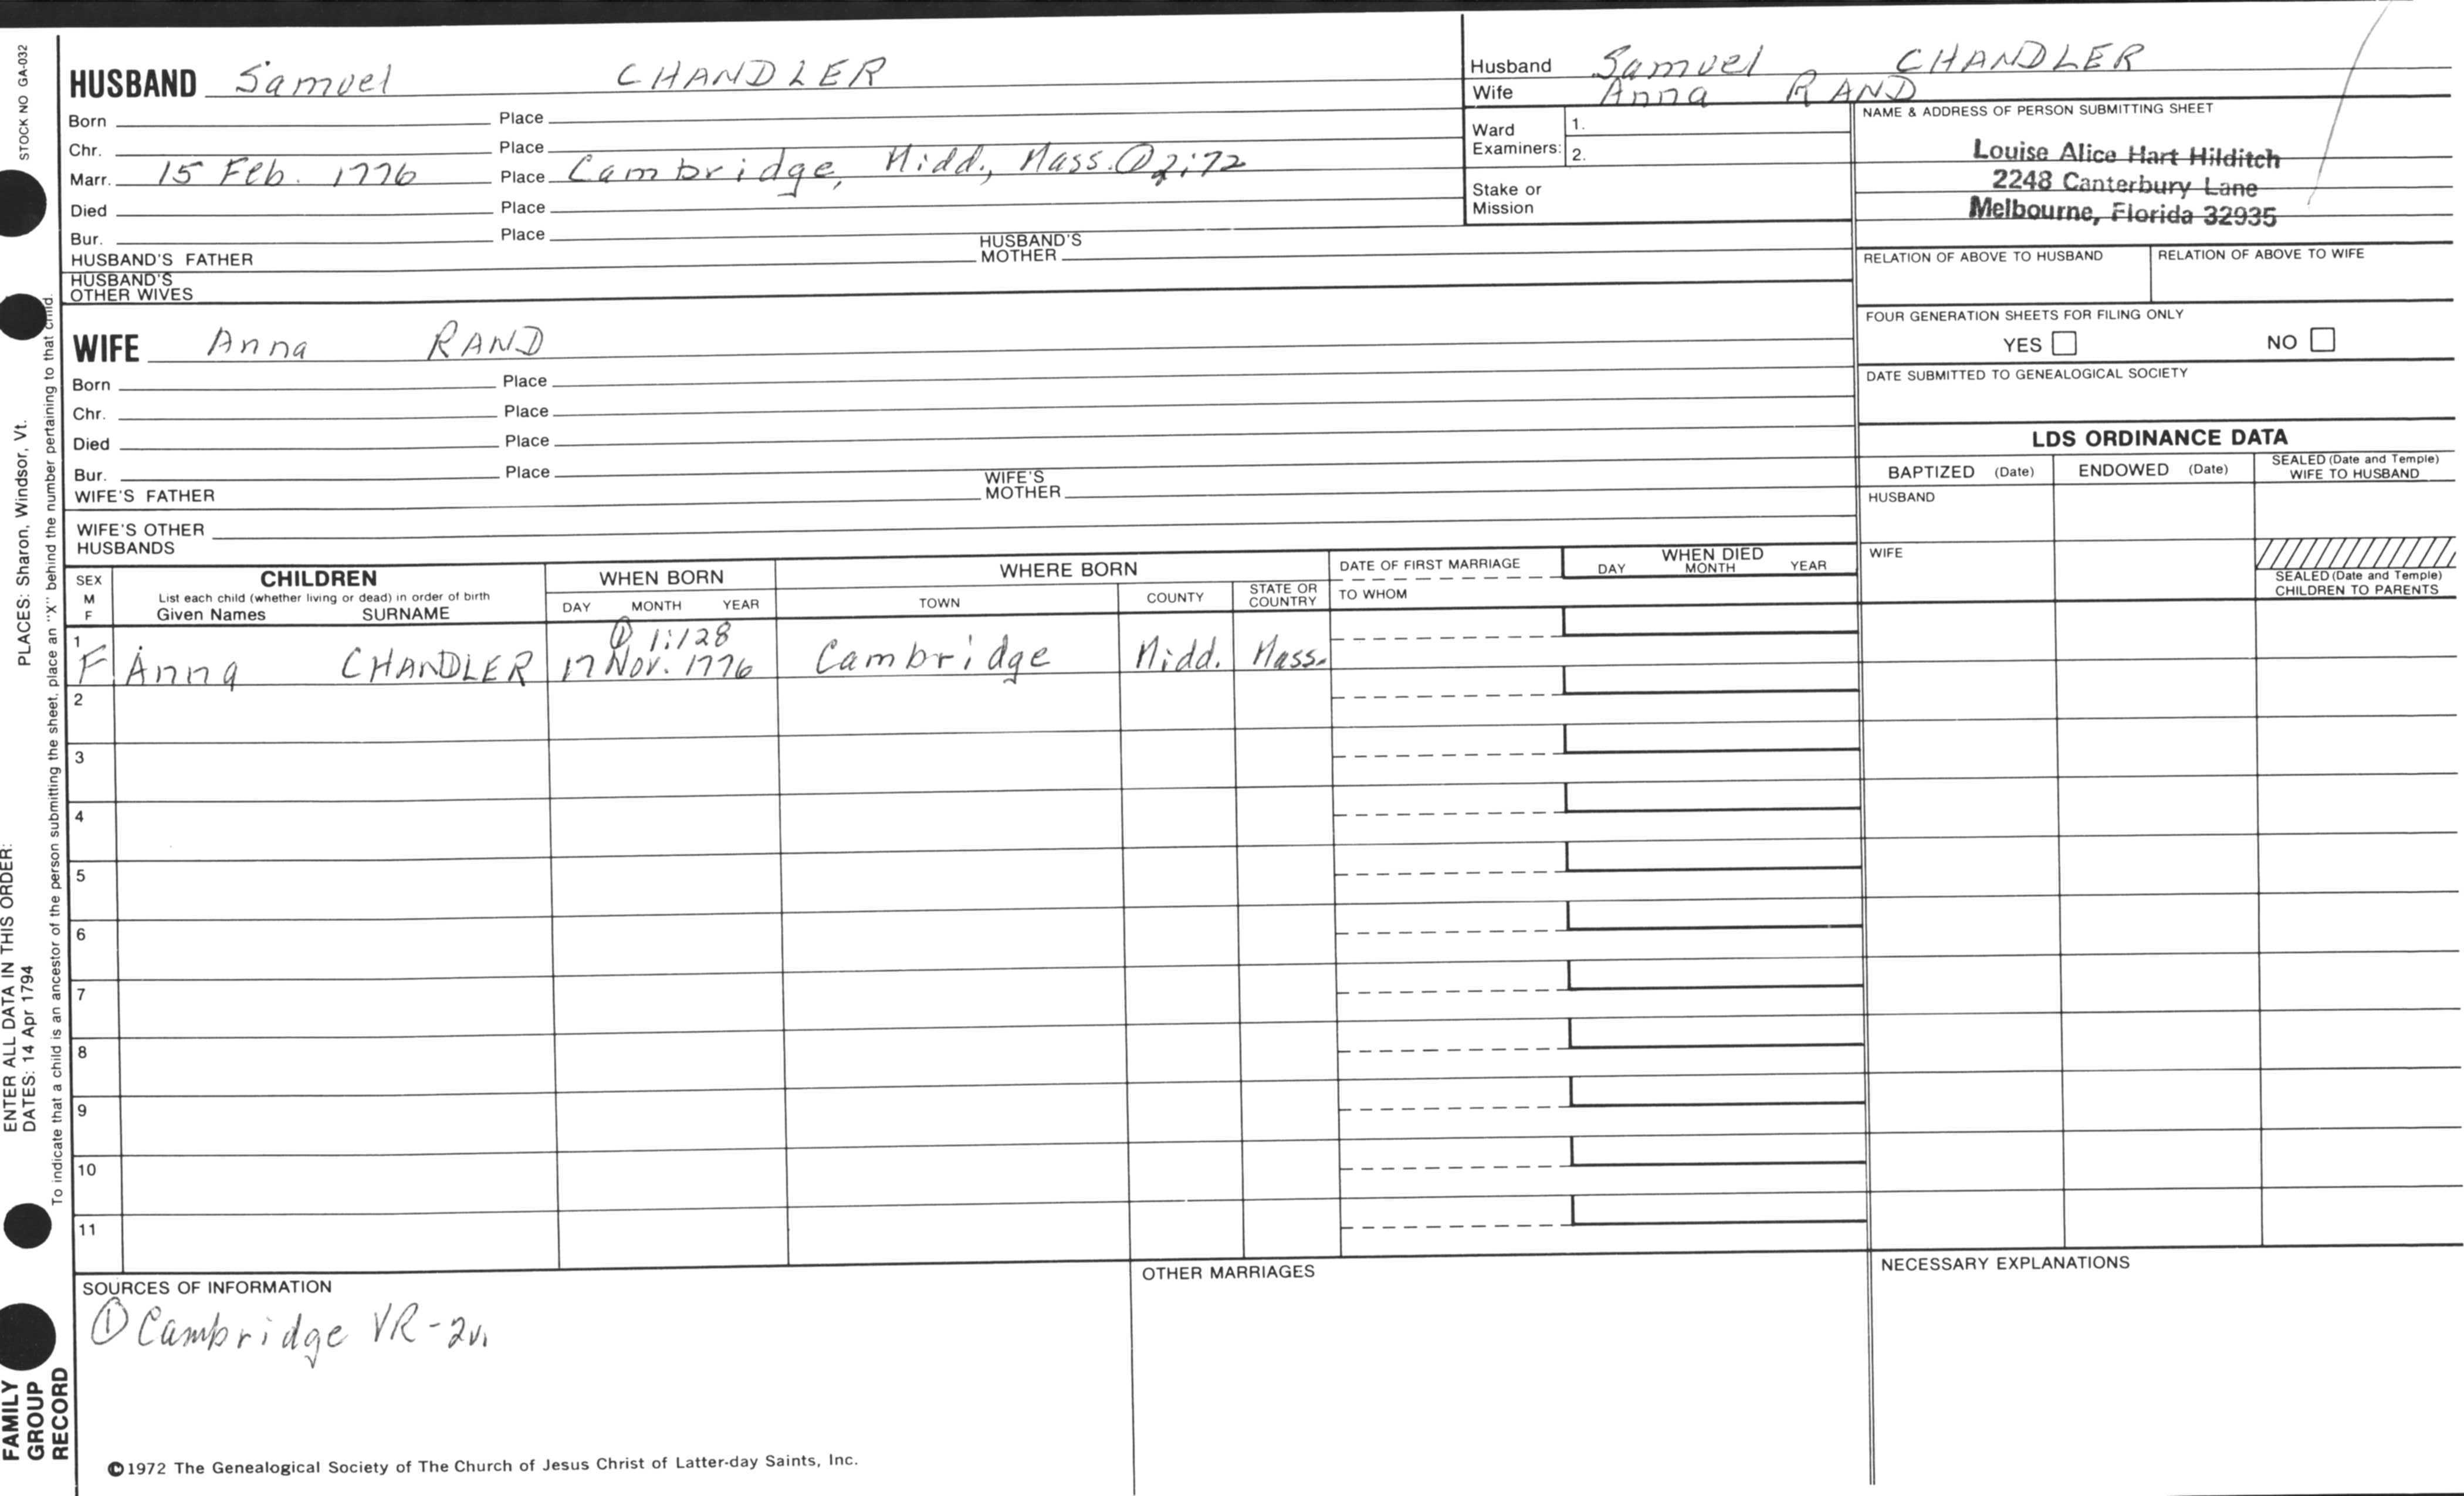 STOCK NO GA-032
PLACES: Sharon, Windsor, Vt.
ENTER ALL DATA IN THIS ORDER:
DATES: 14 Apr 1794
To indicate that a child is an ancestor of the person submitting the sheet, place an "X" behind the number pertaining to that child.
FAMILY
GROUP
RECORD
HUSBAND Samuel CHANDLER
Born Place
Chr. Place
Marr. 15 Feb. 1776 Place Cambridge, Midd., Mass. ① 2:72
Died Place
Bur. Place
HUSBAND'S FATHER HUSBAND'S MOTHER
HUSBAND'S
OTHER WIVES
WIFE Anna RAND
Born Place
Chr. Place
Died Place
Bur. Place
WIFE'S FATHER WIFE'S MOTHER
WIFE'S OTHER
HUSBANDS
Husband Samuel CHANDLER
Wife Anna RAND
Ward
Examiners:
1.
2.
Stake or
Mission
NAME & ADDRESS OF PERSON SUBMITTING SHEET
Louise Alice Hart Hilditch
2248 Canterbury Lane
Melbourne, Florida 32935
RELATION OF ABOVE TO HUSBAND RELATION OF ABOVE TO WIFE
FOUR GENERATION SHEETS FOR FILING ONLY
YES NO
DATE SUBMITTED TO GENEALOGICAL SOCIETY
LDS ORDINANCE DATA
BAPTIZED (Date) ENDOWED (Date) SEALED (Date and Temple) WIFE TO HUSBAND
HUSBAND
WIFE
SEALED (Date and Temple)
CHILDREN TO PARENTS
SEX
M
F
CHILDREN
List each child (whether living or dead) in order of birth
Given Names SURNAME
WHEN BORN
DAY MONTH YEAR
WHERE BORN
TOWN COUNTY STATE OR COUNTRY
DATE OF FIRST MARRIAGE
TO WHOM
WHEN DIED
DAY MONTH YEAR
① 1:128
1 F Anna CHANDLER 17 Nov. 1776 Cambridge Midd. Mass.
2
3
4
5
6
7
8
9
10
11
SOURCES OF INFORMATION
① Cambridge VR-2v.
OTHER MARRIAGES
NECESSARY EXPLANATIONS
©1972 The Genealogical Society of The Church of Jesus Christ of Latter-day Saints, Inc.